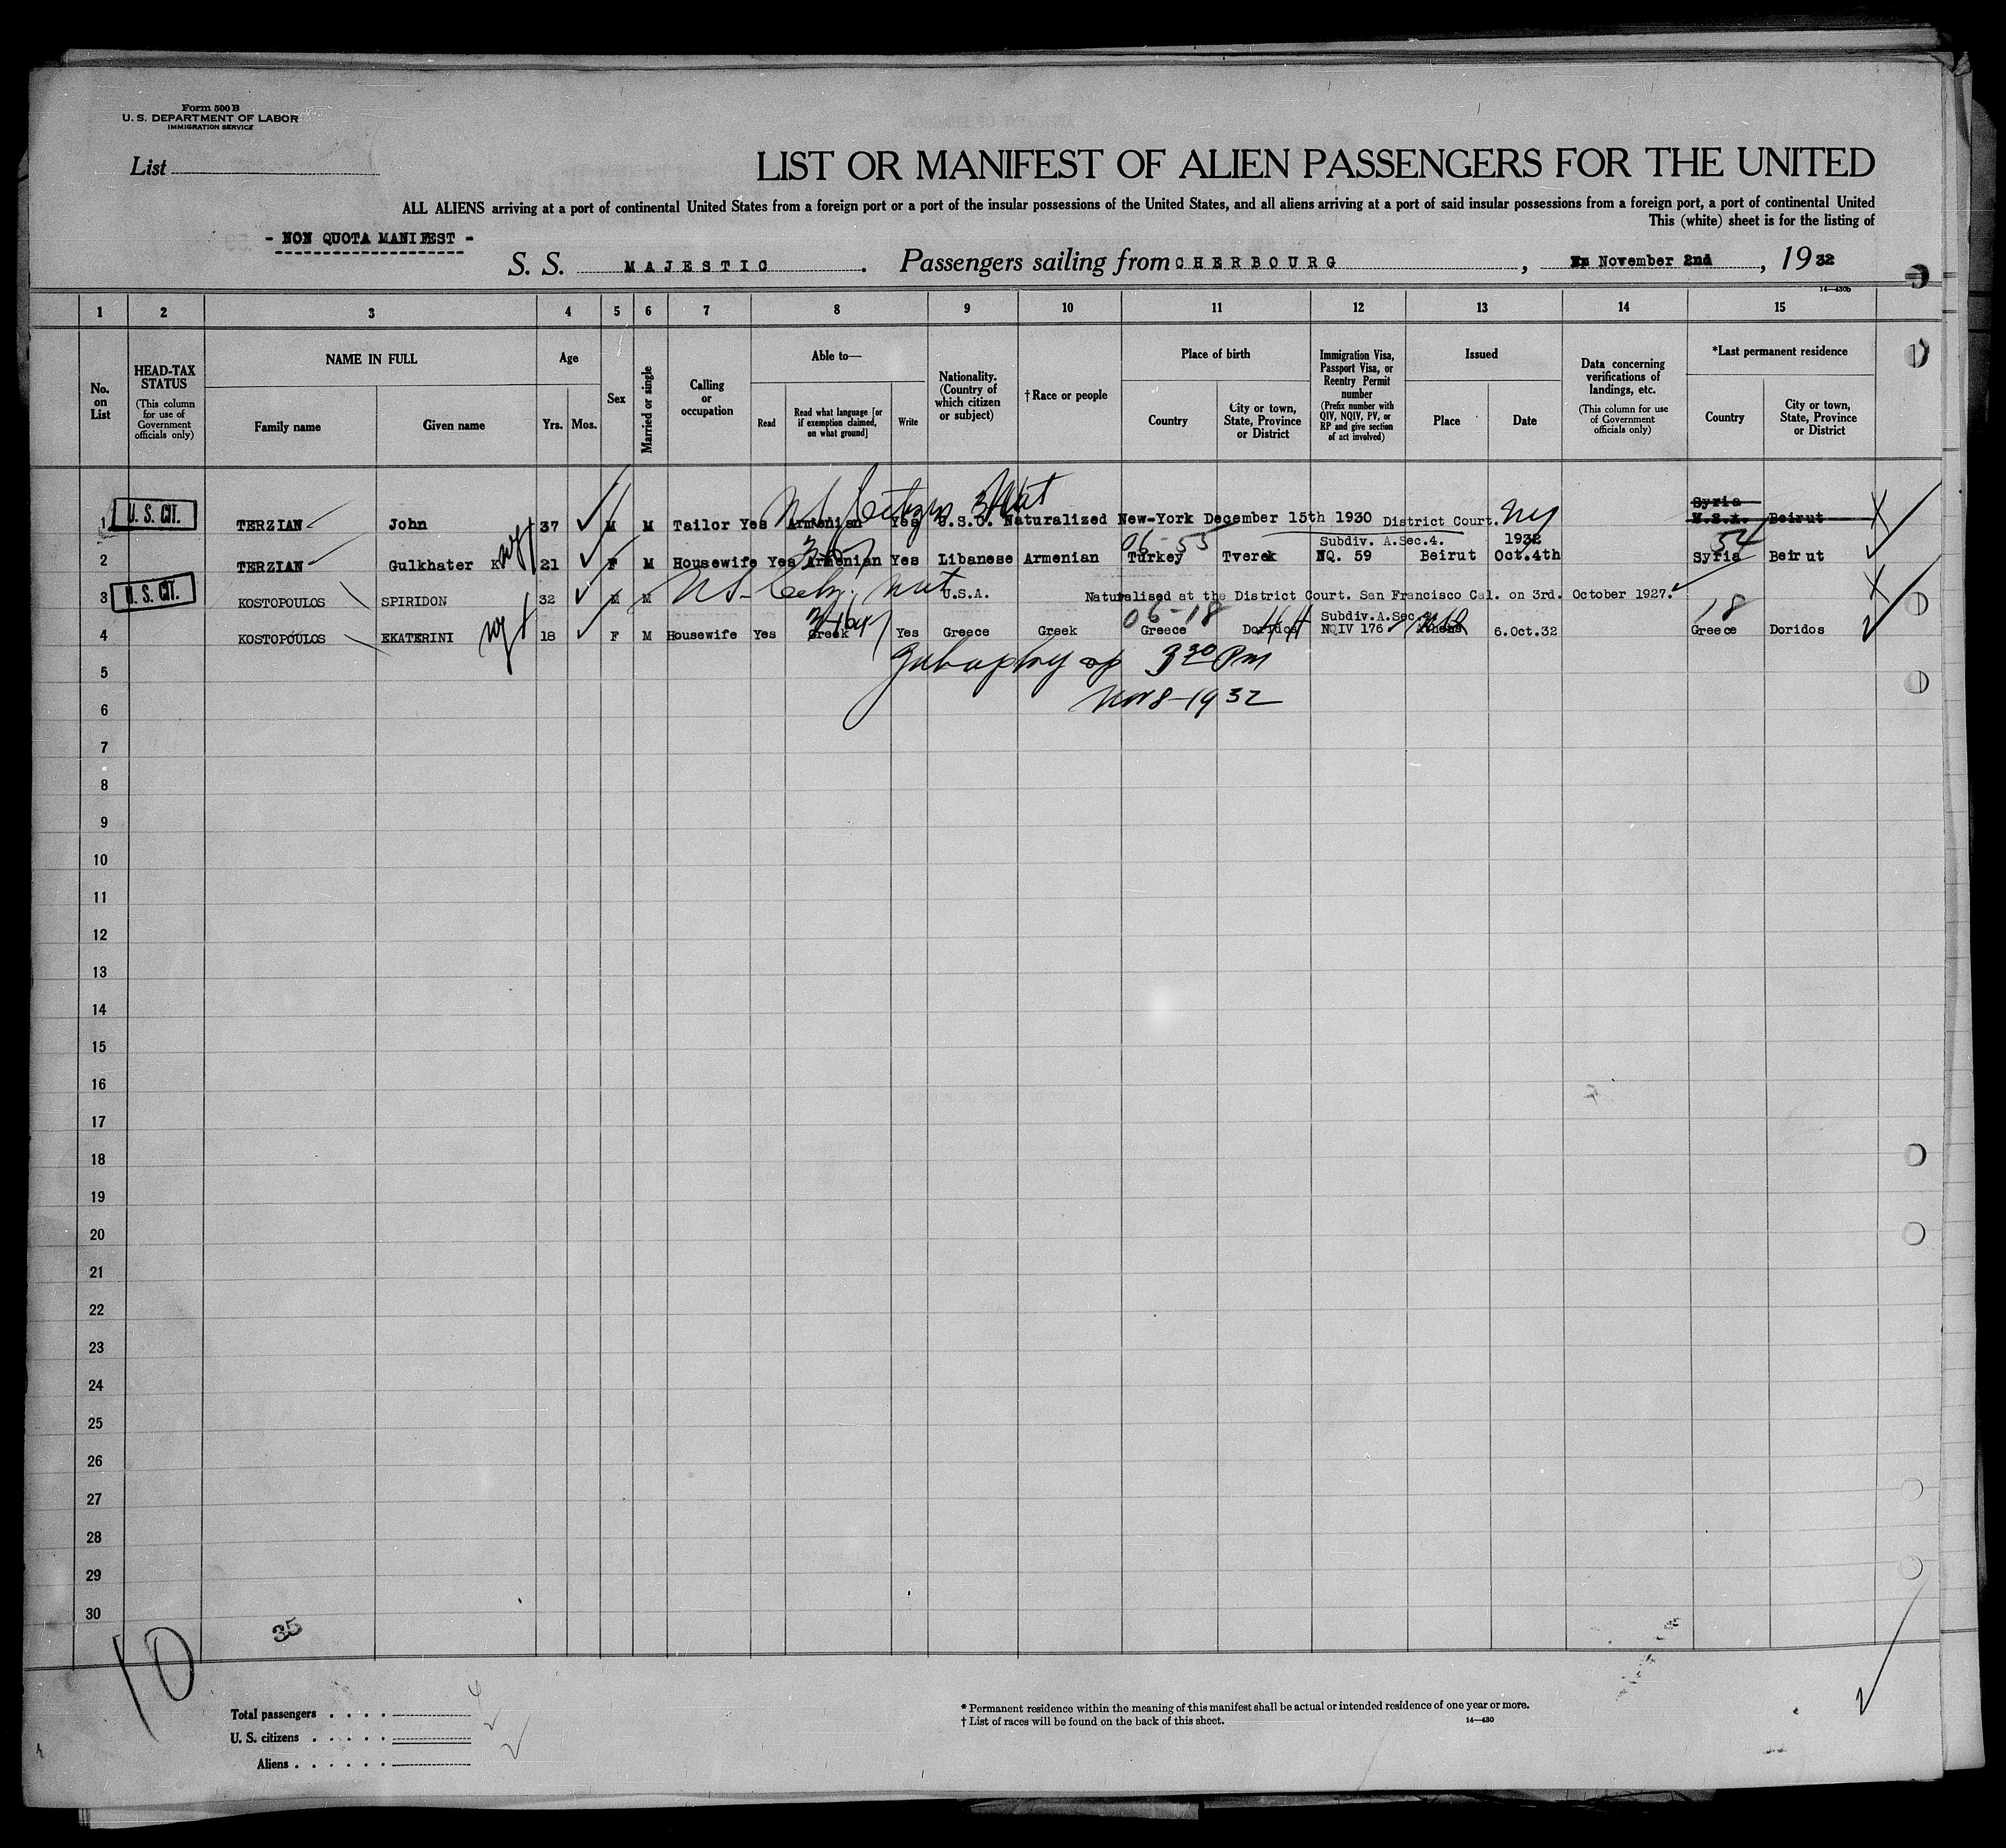 Form 500 B
U. S. DEPARTMENT OF LABOR
IMMIGRATION SERVICE
List
LIST OR MANIFEST OF ALIEN PASSENGERS FOR THE UNITED
ALL ALIENS arriving at a port of continental United States from a foreign port or a port of the insular possessions of the United States, and all aliens arriving at a port of said insular possessions from a foreign port, a port of continental United
This (white) sheet is for the listing of
- NON QUOTA MANIFEST -
S. S. MAJESTIC. Passengers sailing from CHERBOURG, November 2nd, 1932
14—430b
1 2 3 4 5 6 7 8 9 10 11 12 13 14 15
No. on List
HEAD-TAX STATUS
(This column for use of Government officials only)
NAME IN FULL
Family name
Given name
Age
Yrs.
Mos.
Sex
Married or single
Calling or occupation
Able to—
Read
Read what language [or if exemption claimed, on what ground]
Write
Nationality. (Country of which citizen or subject)
† Race or people
Place of birth
Country
City or town, State, Province or District
Immigration Visa, Passport Visa, or Reentry Permit number
(Prefix number with QIV, NQIV, PV, or RP and give section of act involved)
Issued
Place
Date
Data concerning verifications of landings, etc.
(This column for use of Government officials only)
*Last permanent residence
Country
City or town, State, Province or District
US Citizen Nat
Syria
1 U. S. CIT. TERZIAN John 37 M M Tailor Yes Armenian Yes U.S.C. Naturalized New-York December 15th 1930 District Court. NY U.S.A. Beirut
06-55 Subdiv. A.Sec.4. 1932 54
2 TERZIAN Gulkhater K 21 F M Housewife Yes Armenian Yes Libanese Armenian Turkey Tverek NQ. 59 Beirut Oct.4th Syria Beirut
3 U. S. CIT. KOSTOPOULOS SPIRIDON 32 M M U.S.A. Naturalised at the District Court. San Francisco Cal. on 3rd. October 1927.
06-18 Subdiv.A.Sec 18
4 KOSTOPOULOS EKATERINI 18 F M Housewife Yes Greek Yes Greece Greek Greece Doridos NQIV 176 Athens 6.Oct.32 Greece Doridos
5
3 30 PM
6
Nov 8-1932
7
8
9
10
11
12
13
14
15
16
17
18
19
20
21
22
23
24
25
26
27
28
29
30
10
35
Total passengers . . . . 4
U. S. citizens . . . . . 2
Aliens . . . . . . 2
* Permanent residence within the meaning of this manifest shall be actual or intended residence of one year or more.
† List of races will be found on the back of this sheet.
14—430